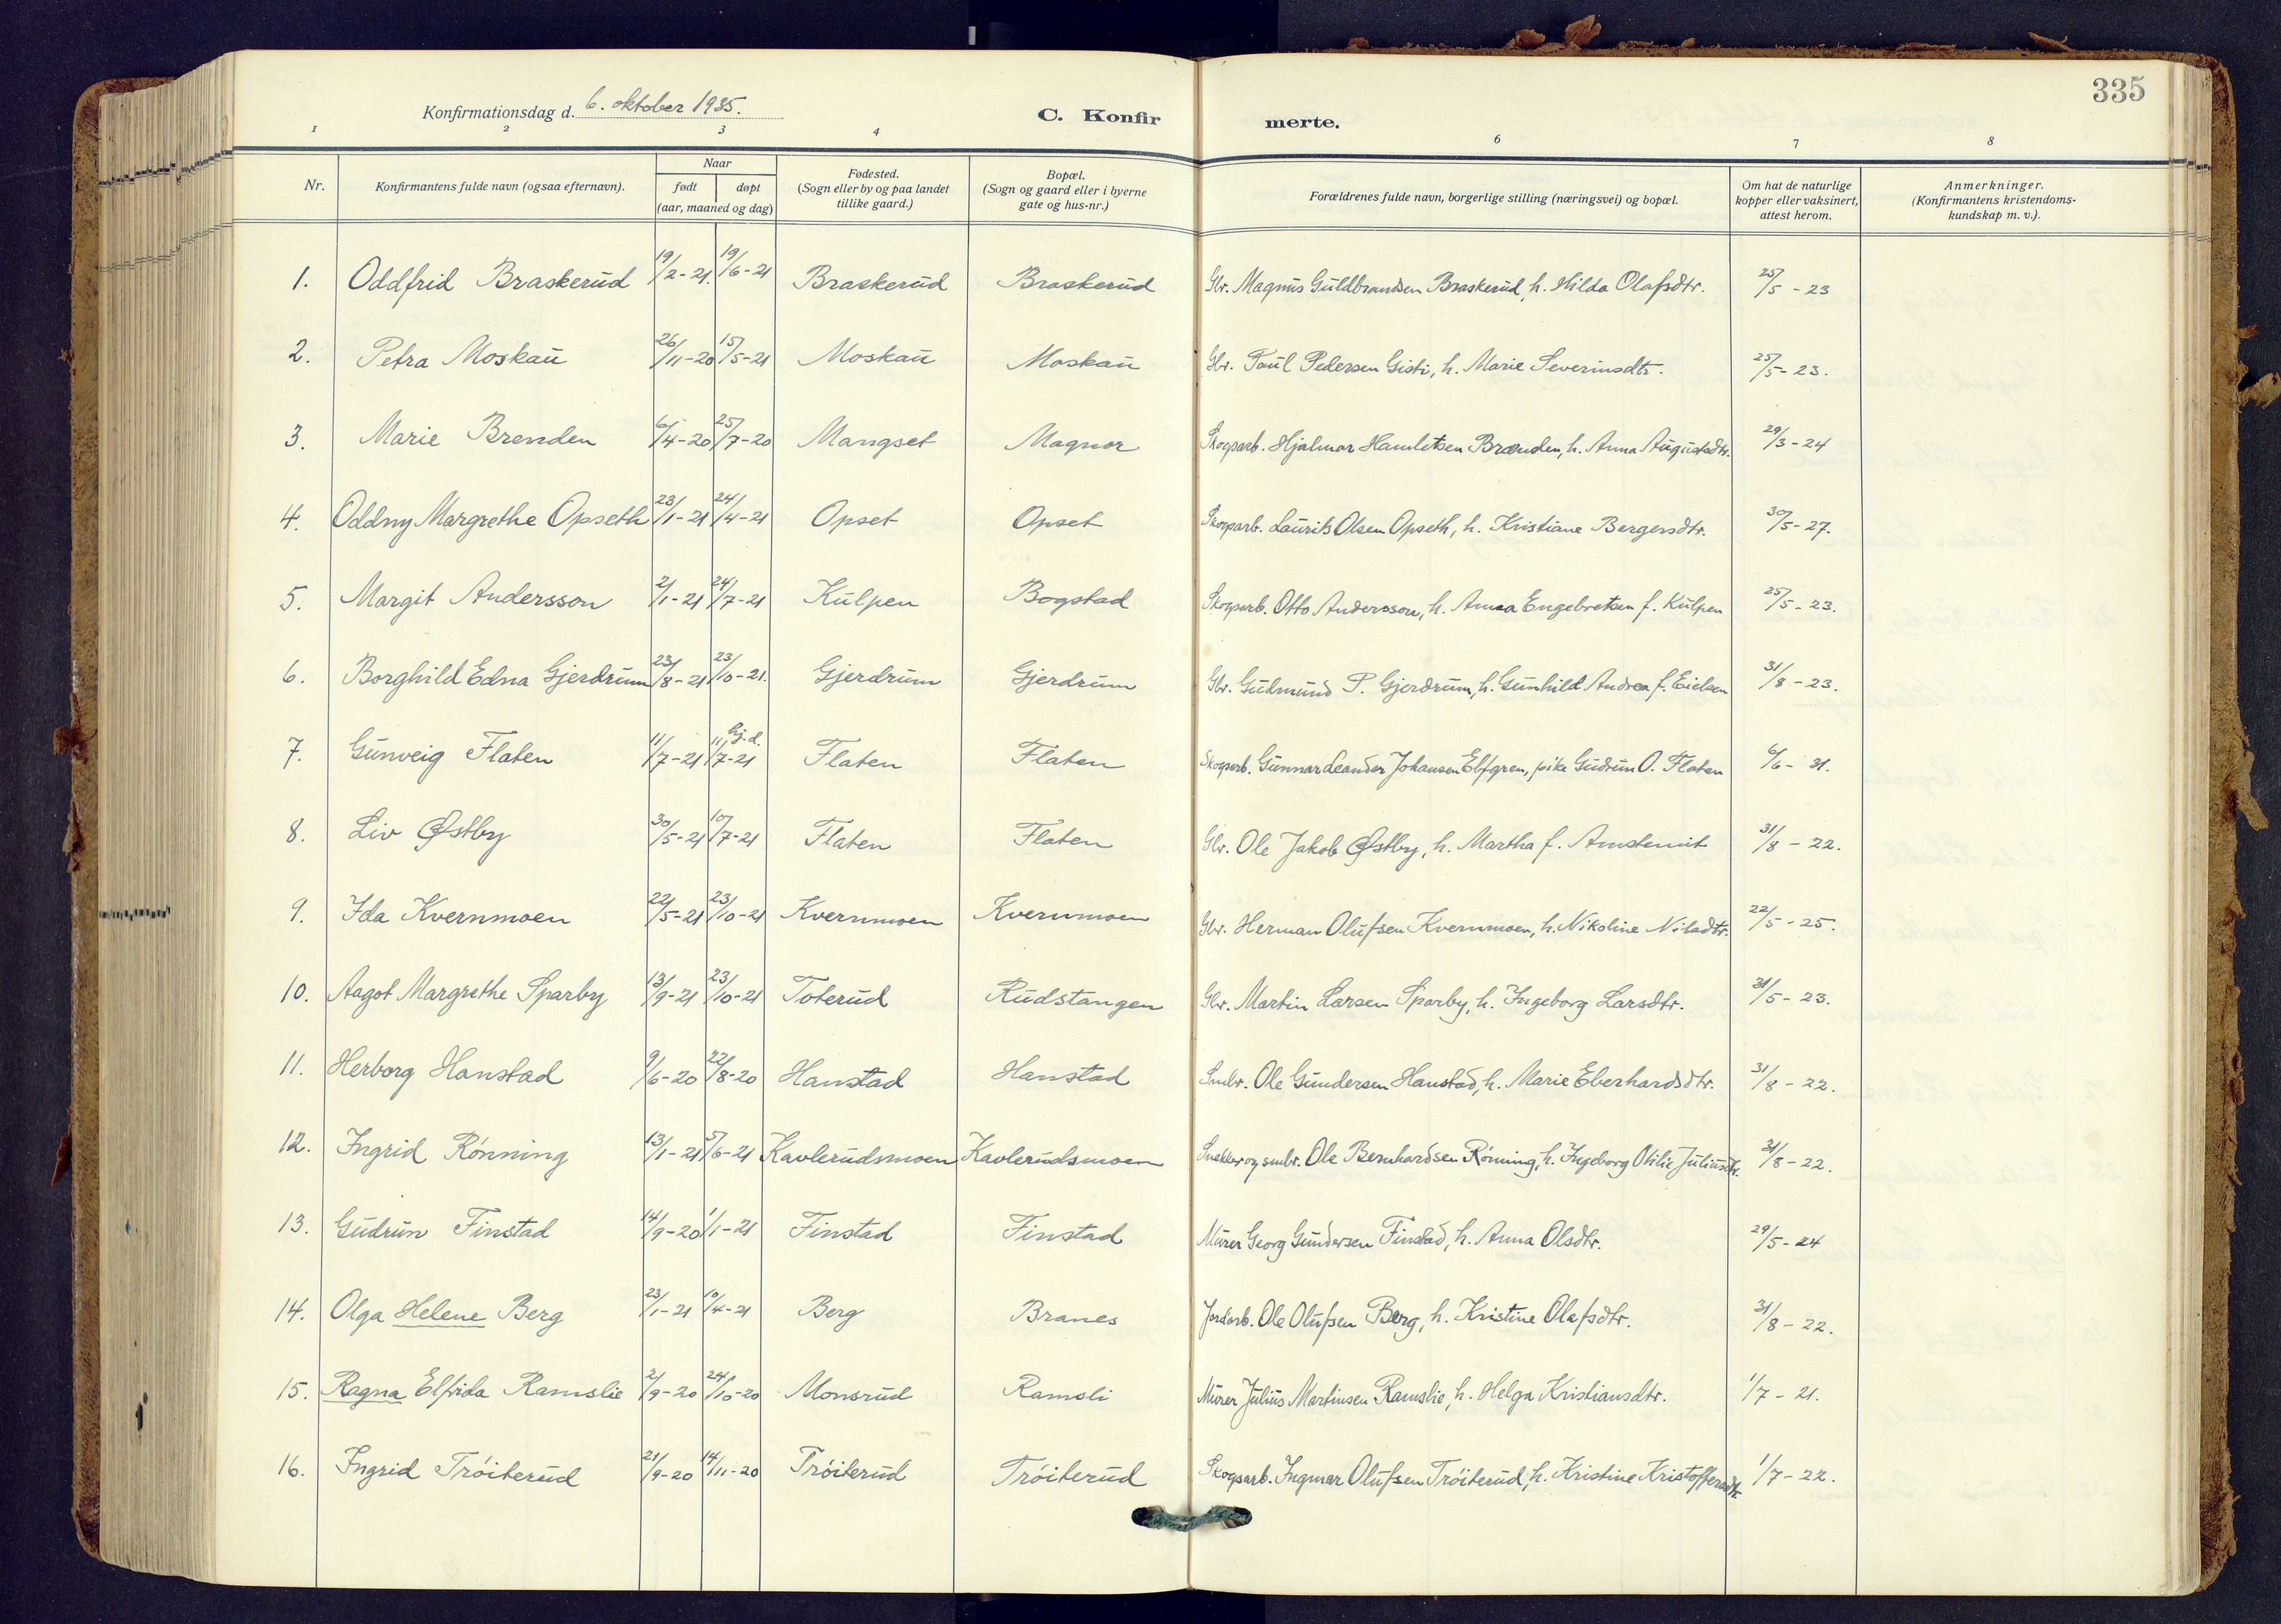 335
Konfirmationsdag d. 6. oktober 1935.
C. Konfirmerte.
1 2 3 4 6 7 8
Nr. Konfirmantens fulde navn (ogsaa efternavn). Naar født døpt (aar, maaned og dag) Fødested. (Sogn eller by og paa landet tillike gaard.) Bopæl. (Sogn og gaard eller i byerne gate og hus-nr.) Forældrenes fulde navn, borgerlige stilling (næringsvei) og bopæl. Om hat de naturlige kopper eller vaksinert, attest herom. Anmerkninger. (Konfirmantens kristendoms-kundskap m. v.).
1. Oddfrid Braskerud 19/2-21. 19/6-21 Braskerud Braskerud Gbr. Magnus Guldbrandsen Braskerud, h. Hilda Olafsdtr. 25/5-23
2. Petra Moskau 26/11-20 15/5-21 Moskau Moskau Gbr. Paul Pedersen Gisti, h. Marie Severinsdtr. 25/5-23.
3. Marie Brenden 6/4-20 25/7-20 Mangset Magnor Skogsarb. Hjalmar Hamletsen Brænden, h. Anna Augustsdtr. 29/3-24
4. Oddny Margrethe Opseth 23/1-21 24/4-21 Opset Opset Skogsarb. Laurits Olsen Opseth, h. Kristiane Bergersdtr. 30/5-27.
5. Margit Andersson 2/1-21 24/7-21 Kulpen Bogstad Skogsarb. Otto Andersson, h. Anna Engebretsen f. Kulpen 25/5-23.
6. Borghild Edna Gjerdrum 23/8-21 23/10-21. Gjerdrum Gjerdrum Gbr. Gudmund P. Gjerdrum, h. Gunhild Andrea f. Eielsen 31/8-23.
7. Gunveig Flaten 11/7-21 hj.d. 11/7-21 Flaten Flaten Skogsarb. Gunnar Leander Johansen Elfgren, pike Gudrun O. Flaten 6/6-31.
8. Liv Østby 30/5-21 10/7-21 Flaten Flaten Gbr. Ole Jakob Østby, h. Martha f. 31/8-22.
9. Ida Kvernmoen 22/5-21 23/10-21 Kvernmoen Kvernmoen Gbr. Herman Olufsen Kvernmoen, h. Nikoline Nilsdtr. 22/5-25.
10. Aagot Margrethe Sparby 13/9-21 23/10-21 Toterud Rudstangen Gbr. Martin Larsen Sparby, h. Ingeborg Larsdtr. 31/5-23.
11. Herborg Hanstad 9/6-20 22/8-20 Hanstad Hanstad Smbr. Ole Gundersen Hanstad, h. Marie Eberhardsdtr. 31/8-22.
12. Ingrid Rönning 13/1-21 5/6-21 Kavlerudsmoen Kavlerudsmoen Snekker og smbr. Ole Bernhardsen Rönning, h. Ingeborg Otilie Juliusdtr. 31/8-22.
13. Gudrun Finstad 14/9-20 1/1-21 Finstad Finstad Murer Georg Gundersen Finstad, h. Anna Olsdtr. 29/5-24
14. Olga Helene Berg 23/1-21 10/4-21 Berg Branes Jordarb. Ole Olufsen Berg, h. Kristine Olafsdtr. 31/8-22.
15. Ragna Elfrida Ramslie 2/9-20 24/10-20 Monsrud Ramsli Murer Julius Martinsen Ramslie, h. Helga Kristiansdtr. 1/7-21.
16. Ingrid Tröiterud 21/9-20 14/11-20 Tröiterud Tröiterud Skogsarb. Ingmar Olufsen Tröiterud, h. Kristine Kristoffersdtr. 1/7-22.